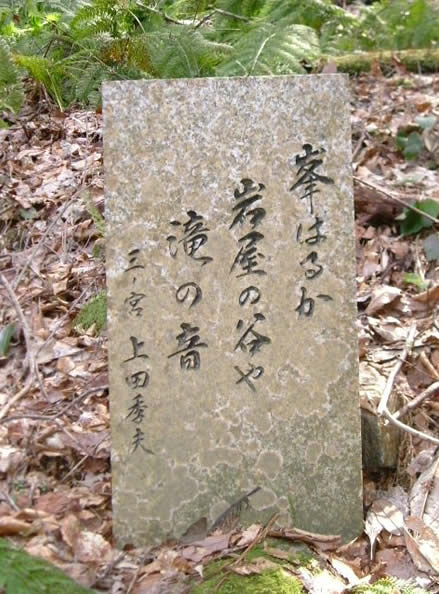 峯はるか
岩屋の谷や
滝の音
三ノ宮 上田季夫